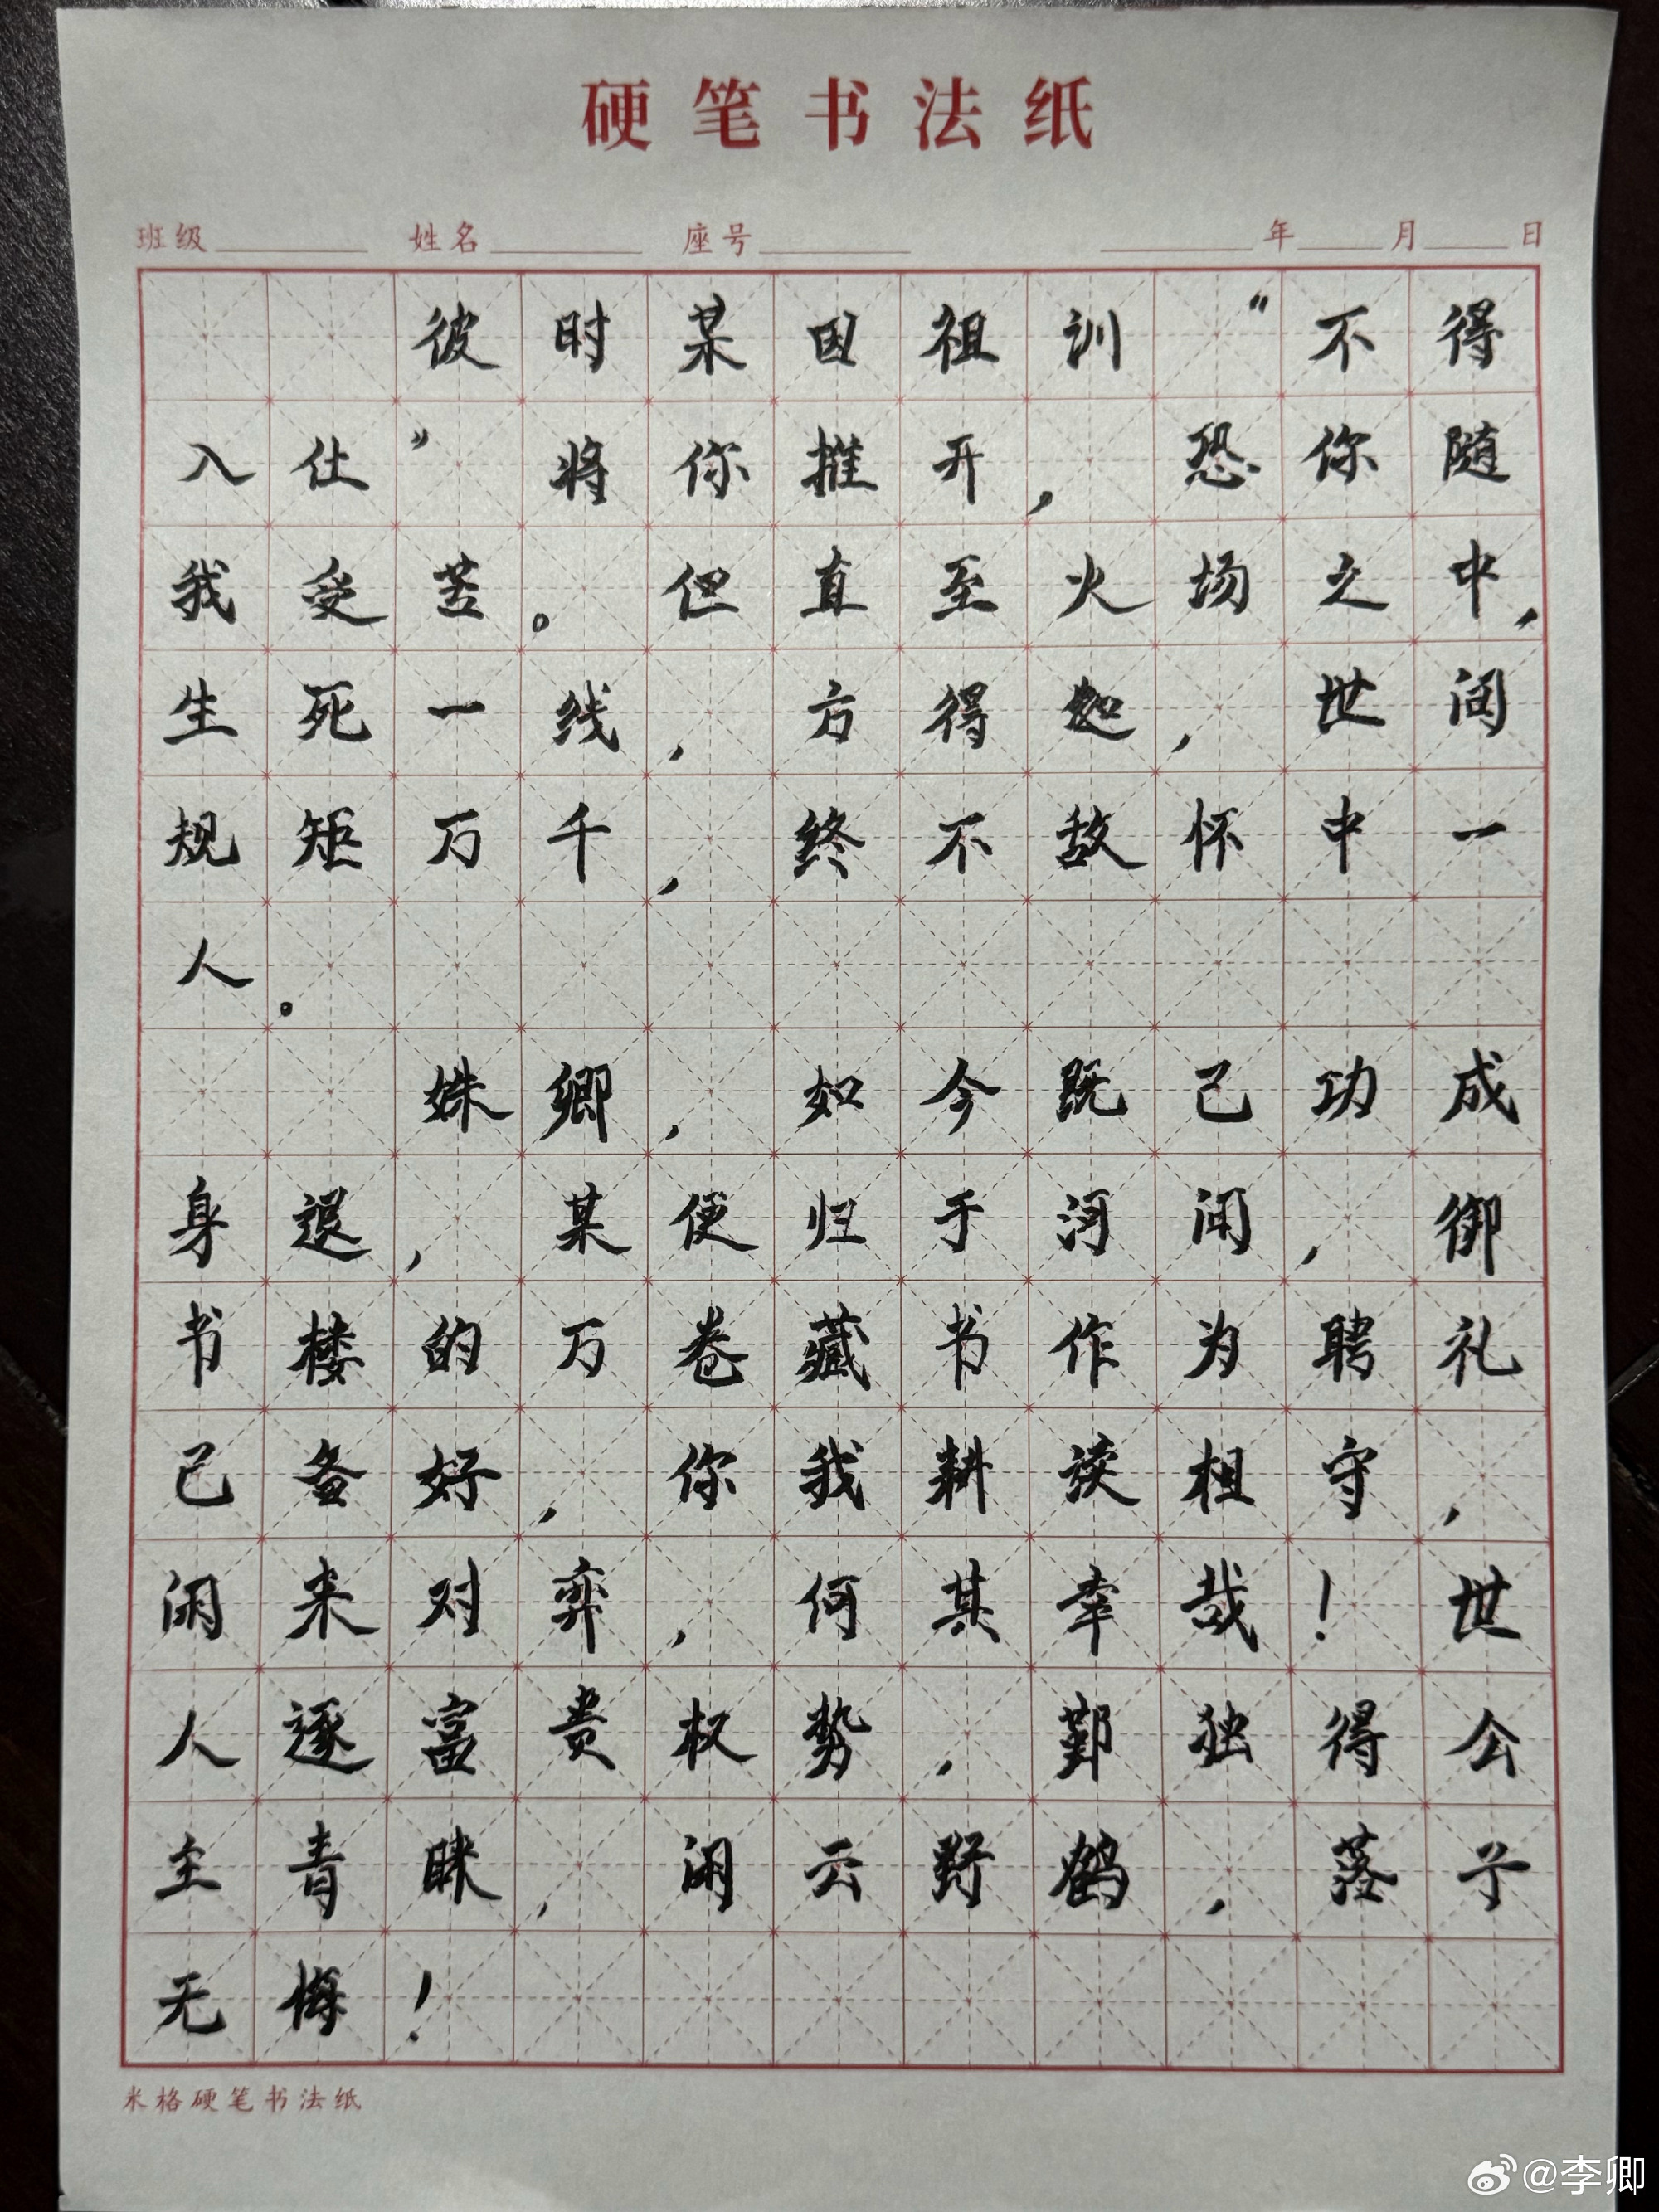 硬笔书法纸
班级 姓名 座号 年 月 日
彼时某因祖训“不得
入仕”将你推开，恐你随
我受苦。但直至火场之中，
生死一线，方得知，世间
规矩万千，终不敌怀中一
人。
姝卿，如今既已功成
身退，某便归于河间，御
书楼的万卷藏书作为聘礼
已备好，你我耕读相守，
闲来对弈，何其幸哉！世
人逐富贵权势，鄞独得公
主青睐，闲云野鹤，落子
无悔！
米格硬笔书法纸
@李卿